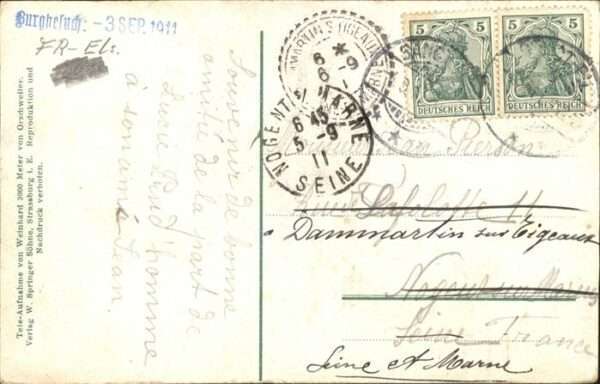 Burgbesuch: - 3 SEP. 1911
FR-Els.
Tele-Aufnahme von Weinhard 3000 Meter von Orschweiler.
Verlag W. Springer Söhne, Strassburg i. E. Reproduktion und
Nachdruck verboten.
Souvenir de bonne
amitié de la part de
Lucien Prud'homme
à son ami Jean.
6 *
6 -9
NOGENT S/ MARNE
6 45
5 -9
11
SEINE
5 5
DEUTSCHES REICH
5 5
DEUTSCHES REICH
Monsieur Jean
11
Dammartin sur Tigeaux
Nogent sur Marne
Seine France
Seine et Marne